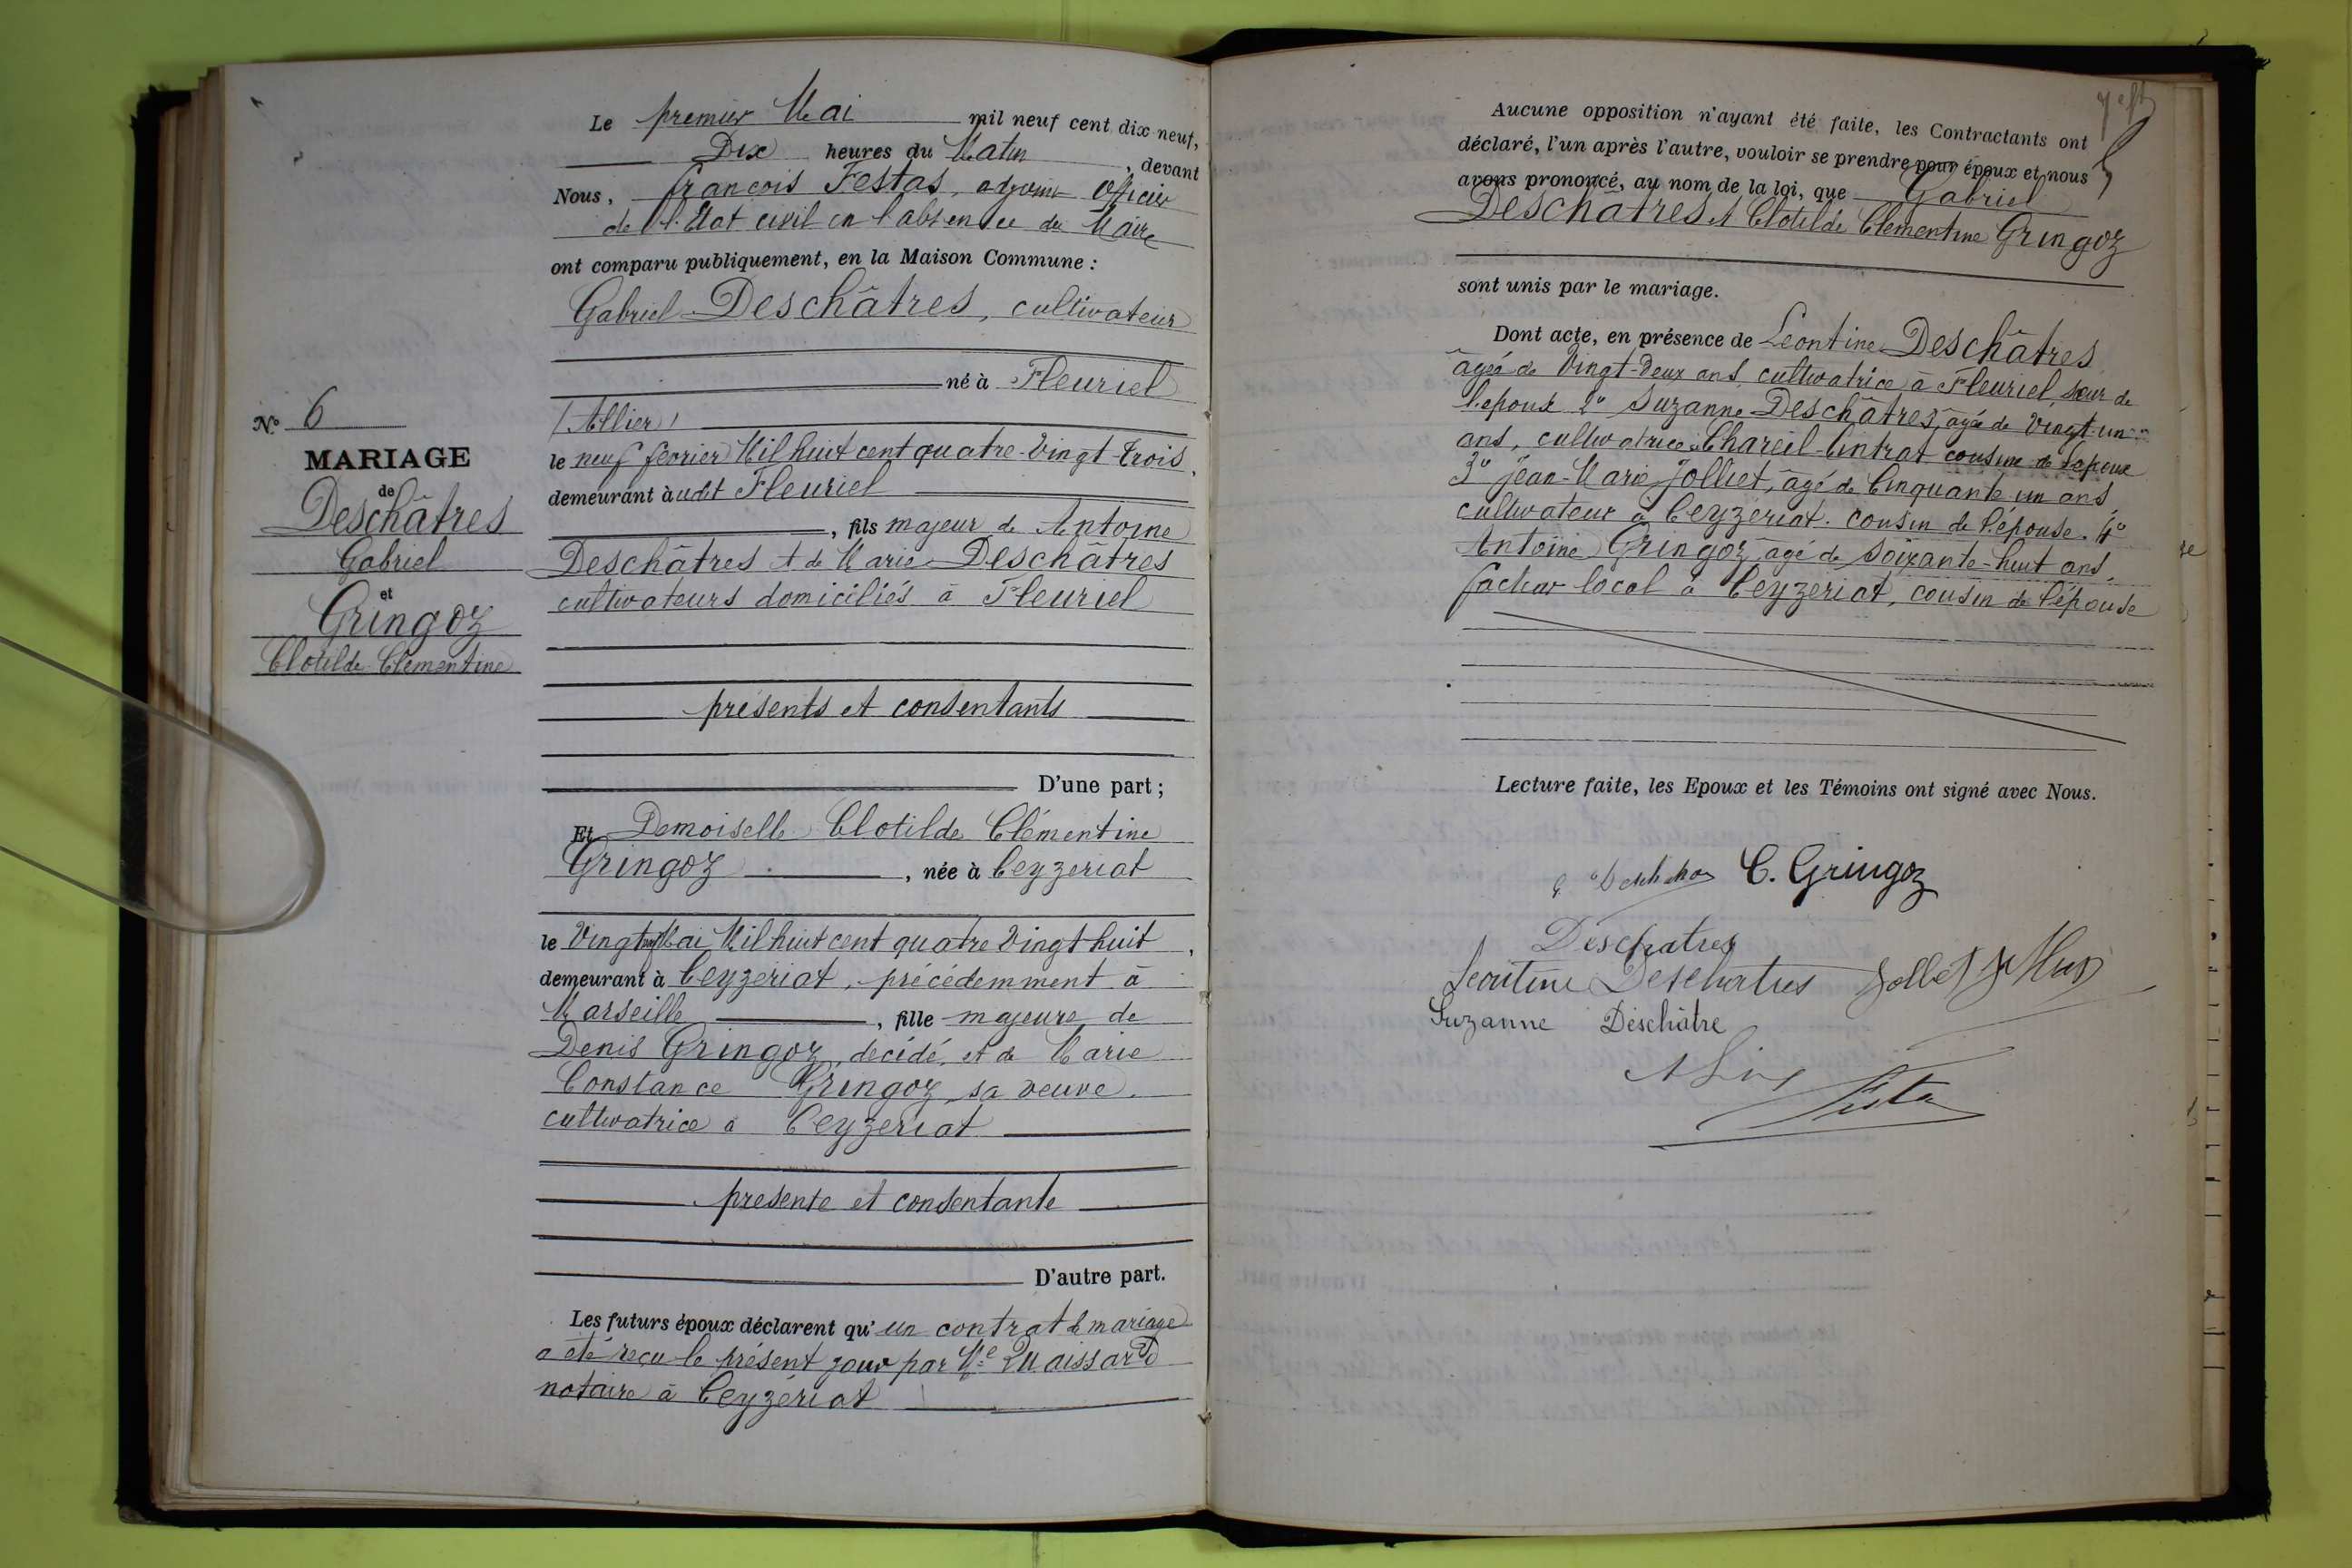 Le premier Mai mil neuf cent dix neuf,
Dix heures du Matin, devant
Nous, François Festas, adjoint Officier
de l'Etat civil en l'absence du Maire
ont comparu publiquement, en la Maison Commune :
Gabriel Deschâtres, cultivateur
né à Fleuriel
(Allier)
le neuf février Mil huit cent quatre-Vingt-trois,
demeurant à udit Fleuriel
, fils majeur de Antoine
Deschâtres et de Marie Deschâtres
cultivateurs domiciliés à Fleuriel
présents et consentants
D'une part ;
Et Demoiselle Clotilde Clémentine
Gringoz, née à Ceyzeriat
le Vingt neuf Mai Mil huit cent quatre Vingt huit,
demeurant à Ceyzeriat, précédemment à
Marseille, fille majeure de
Denis Gringoz, décédé, et de Marie
Constance Gringoz, sa veuve,
cultivatrice à Ceyzeriat
présente et consentante
D'autre part.
Les futurs époux déclarent qu'un contrat de mariage
a été reçu le présent jour par Me
notaire à Ceyzériat
N° 6
MARIAGE
de
Deschâtres
Gabriel
et
Gringoz
Clotilde Clémentine
Aucune opposition n'ayant été faite, les Contractants ont
déclaré, l'un après l'autre, vouloir se prendre pour époux et nous
avons prononcé, au nom de la loi, que Gabriel
Deschâtres et Clotilde Clémentine Gringoz
sont unis par le mariage.
Dont acte, en présence de Leontine Deschâtres
âgée de Vingt-deux ans, cultivatrice à Fleuriel, sœur de
l'epoux 2° Suzanne Deschâtres, agée de Vingt-un
ans, cultivatrice à Chareil-Cintrat cousine de l'epoux
3° Jean-Marie Jolliet, âgé de Cinquante-un ans,
cultivateur à Ceyzériat. cousin de l'épouse. 4°
Antoine Gringoz, âgé de soixante-huit ans,
facteur local à Ceyzeriat, cousin de l'épouse
Lecture faite, les Epoux et les Témoins ont signé avec Nous.
C. Gringoz
Deschatres
Leontine Deschatres
Suzanne Deschâtre
Festa